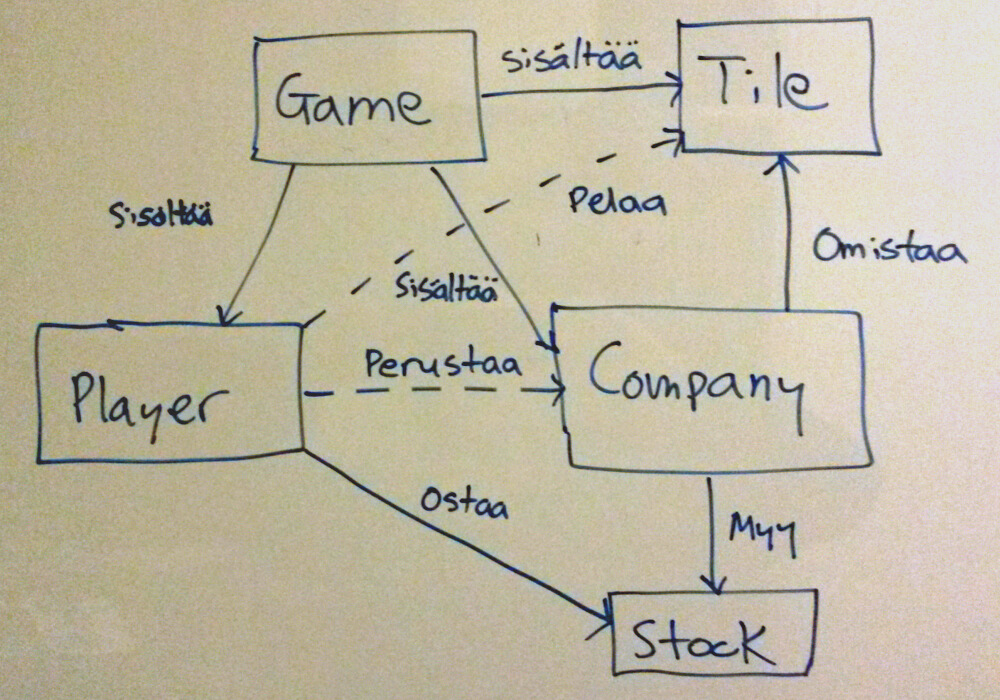 Game
sisältää
Tile
Sisältää
Pelaa
Omistaa
Sisältää
Player
Perustaa
Company
Ostaa
Myy
Stock